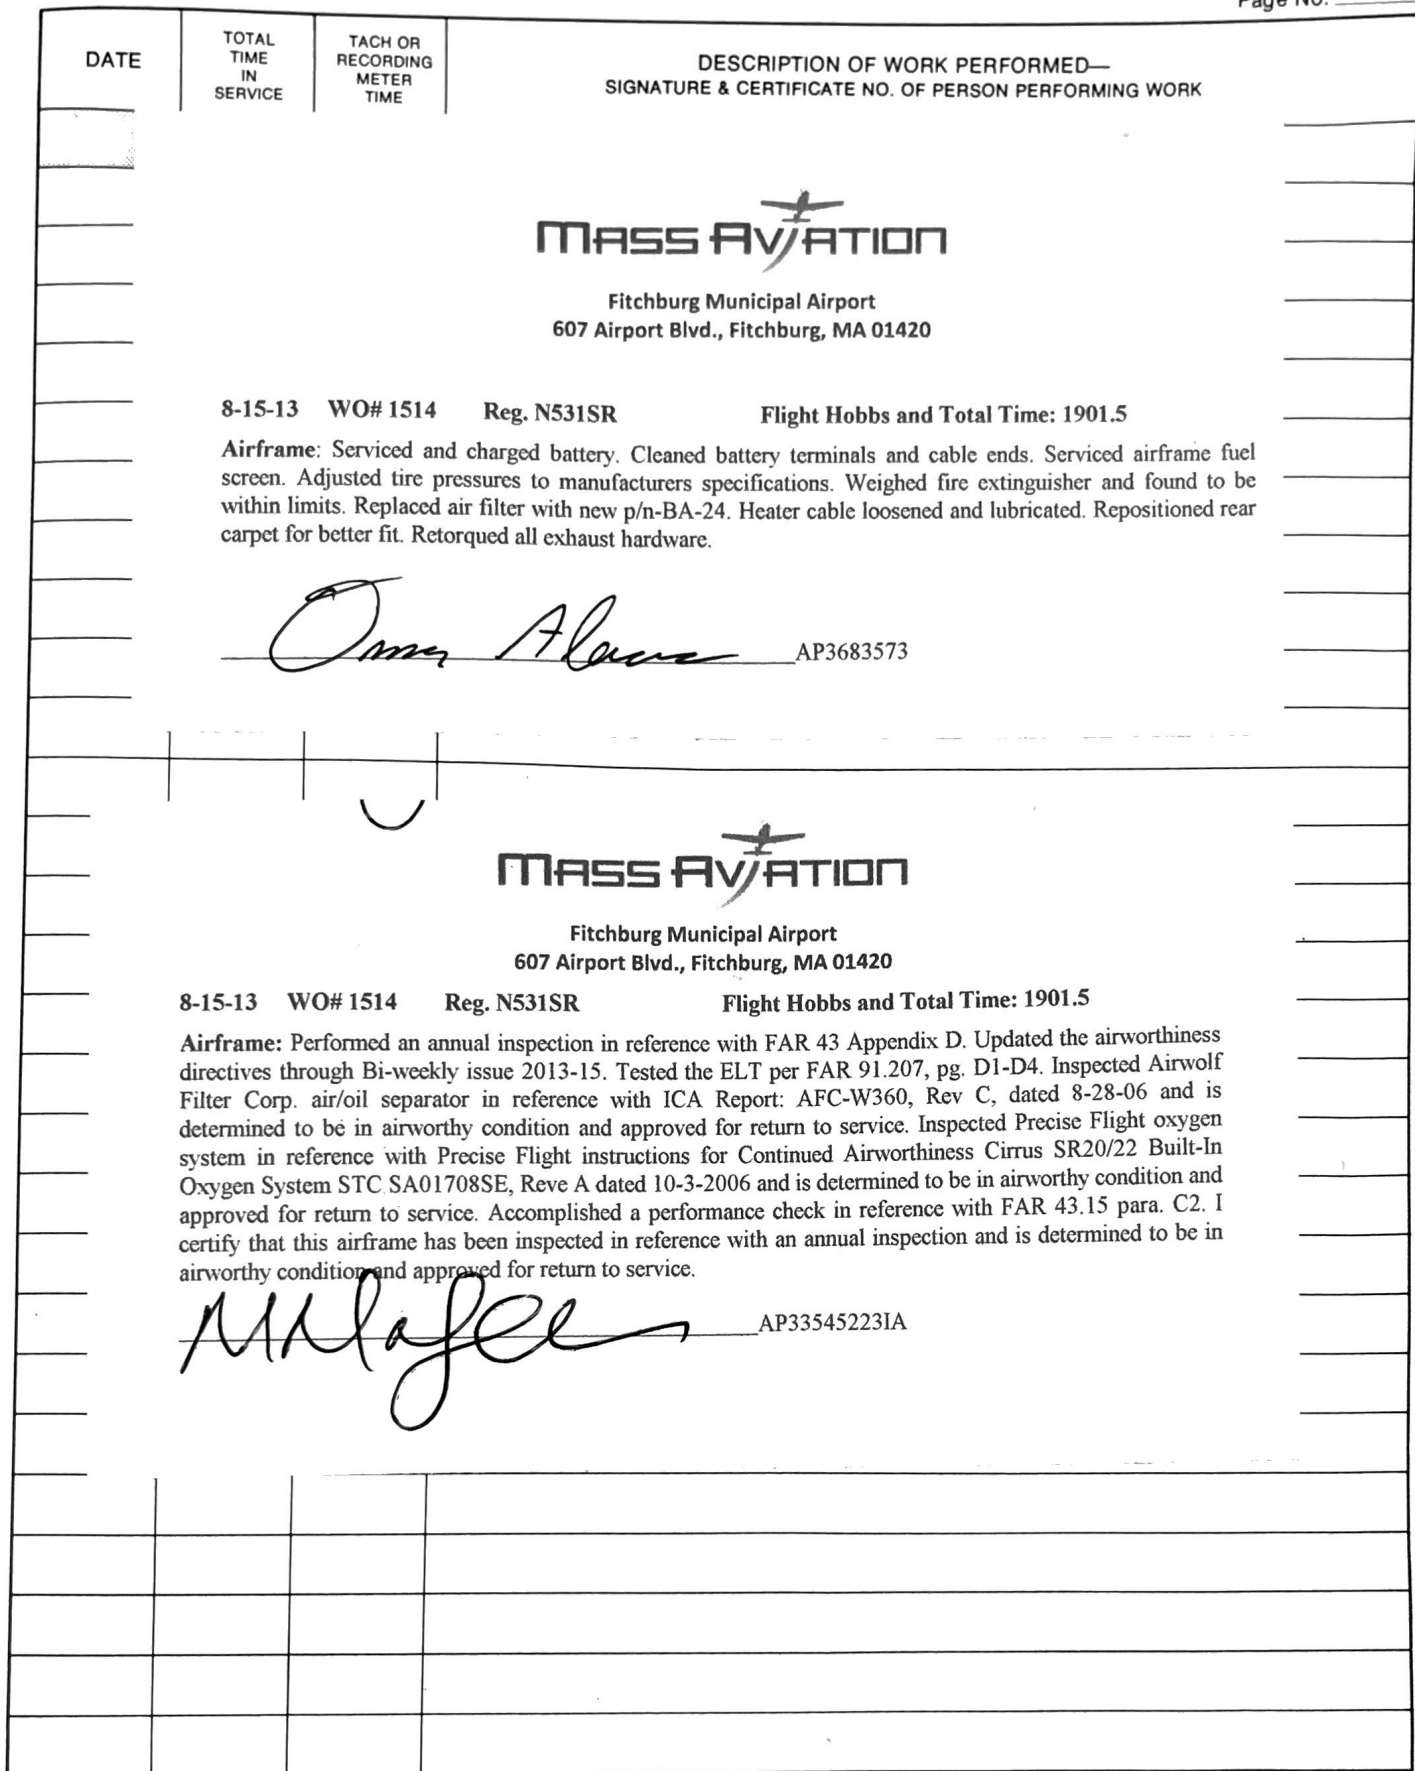 Page No.
DATE
TOTAL
TIME
IN
SERVICE
TACH OR
RECORDING
METER
TIME
DESCRIPTION OF WORK PERFORMED—
SIGNATURE & CERTIFICATE NO. OF PERSON PERFORMING WORK
MASS AVIATION
Fitchburg Municipal Airport
607 Airport Blvd., Fitchburg, MA 01420
8-15-13 WO# 1514 Reg. N531SR Flight Hobbs and Total Time: 1901.5
Airframe: Serviced and charged battery. Cleaned battery terminals and cable ends. Serviced airframe fuel
screen. Adjusted tire pressures to manufacturers specifications. Weighed fire extinguisher and found to be
within limits. Replaced air filter with new p/n-BA-24. Heater cable loosened and lubricated. Repositioned rear
carpet for better fit. Retorqued all exhaust hardware.
AP3683573
MASS AVIATION
Fitchburg Municipal Airport
607 Airport Blvd., Fitchburg, MA 01420
8-15-13 WO# 1514 Reg. N531SR Flight Hobbs and Total Time: 1901.5
Airframe: Performed an annual inspection in reference with FAR 43 Appendix D. Updated the airworthiness
directives through Bi-weekly issue 2013-15. Tested the ELT per FAR 91.207, pg. D1-D4. Inspected Airwolf
Filter Corp. air/oil separator in reference with ICA Report: AFC-W360, Rev C, dated 8-28-06 and is
determined to be in airworthy condition and approved for return to service. Inspected Precise Flight oxygen
system in reference with Precise Flight instructions for Continued Airworthiness Cirrus SR20/22 Built-In
Oxygen System STC SA01708SE, Reve A dated 10-3-2006 and is determined to be in airworthy condition and
approved for return to service. Accomplished a performance check in reference with FAR 43.15 para. C2. I
certify that this airframe has been inspected in reference with an annual inspection and is determined to be in
airworthy condition and approved for return to service.
AP33545223IA